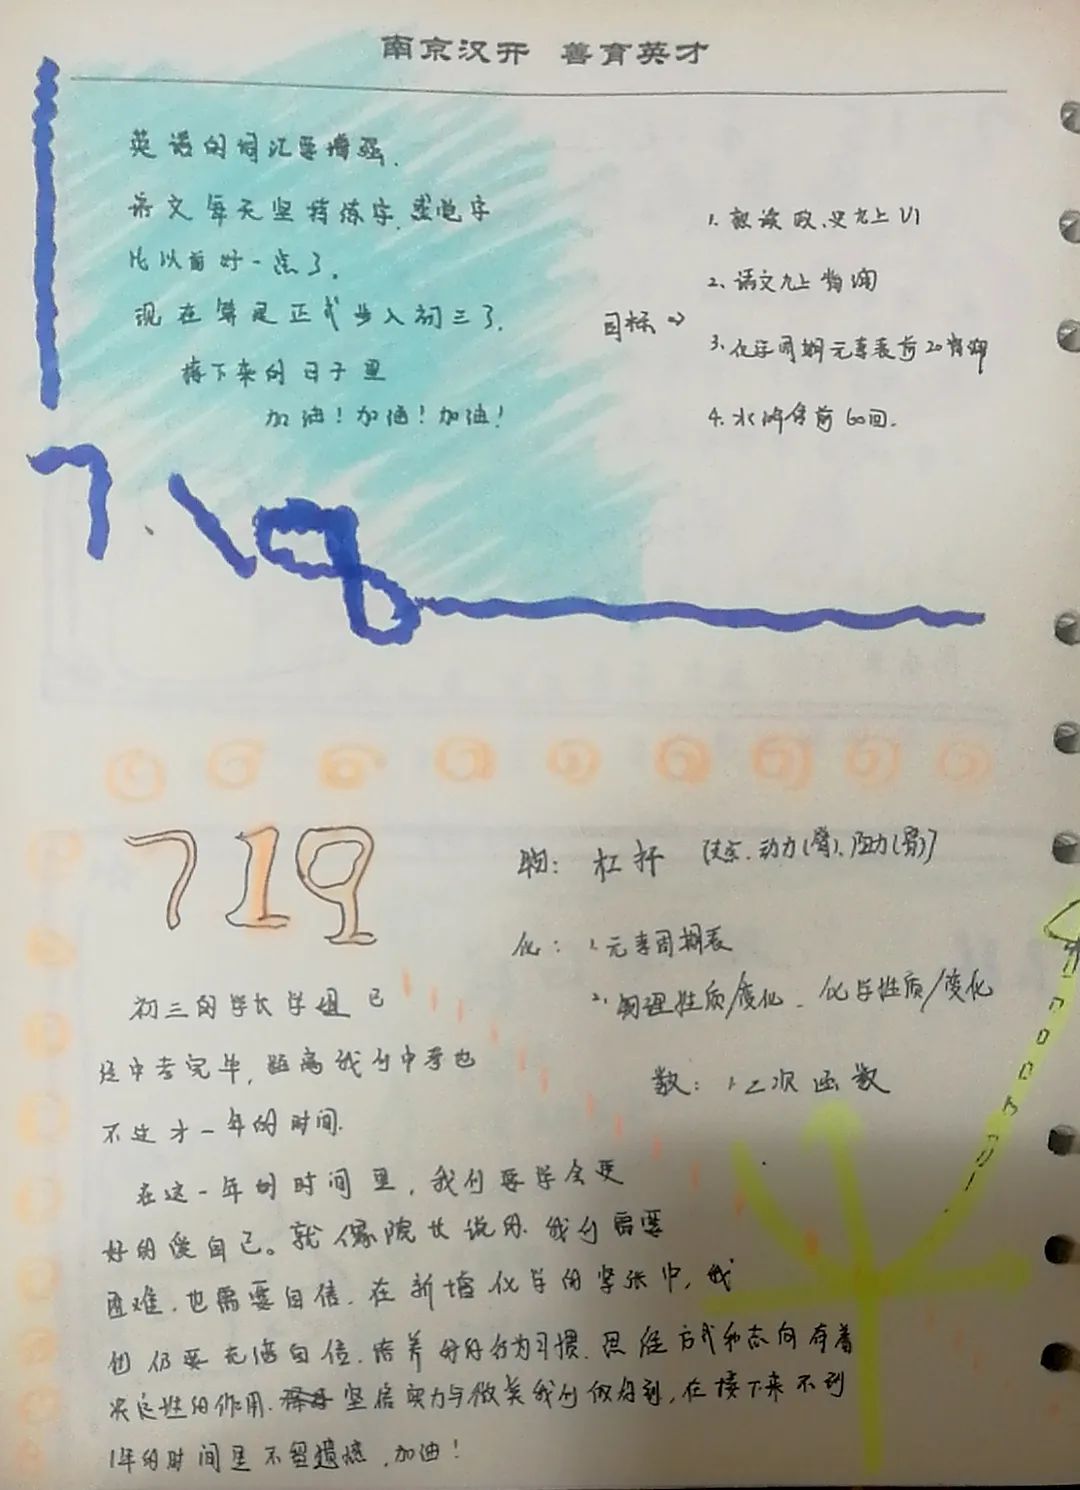 南京汉开 善育英才
英语的词汇要增强.
语文每天坚持练字.感觉字
比以前好一点了.
现在算是正式步入初三了.
接下来的日子里
加油!加油!加油!
目标⇒
1. 熟读政、史九上 U1
2. 语文九上背诵
3. 化学周期元素表前20背御
4. 水浒传前60回.
7.19
719
物: 杠杆 [支点.动力(臂)、阻力(臂)]
化: 1.元素周期表
2. 物理性质/变化. 化学性质/变化
数: 1.二次函数
初三的学长学姐已
经中考完毕, 距离我们中考也
不过才一年的时间.
在这一年的时间里, 我们要学会更
好的爱自己。就像院长说的.我们需要
困难.也需要自信.在新增化学的紧张中,我
们仍要充满自信.培养好的行为习惯.思维方式和志向有着
决定性的作用. 坚信实力与微笑我们做得到, 在接下来不到
1年的时间里不留遗憾.加油!